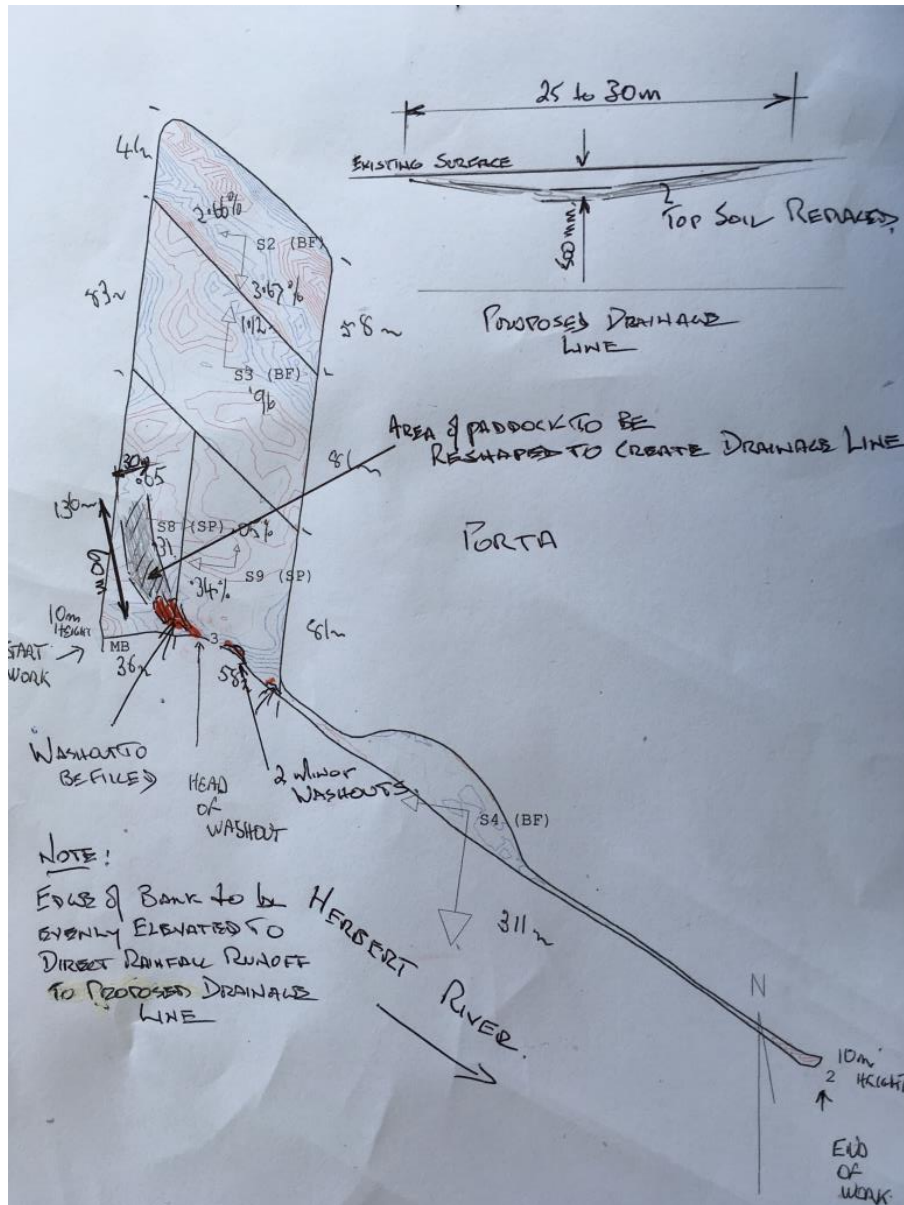 25 to 30m
EXISTING SURFACE
TOP SOIL REPLACED
PROPOSED DRAINAGE
LINE
2.66%
S2 (BF)
3.67%
83m
1.12%
58m
S3 (BF)
.96
AREA of PADDOCK TO BE
RESHAPED TO CREATE DRAINAGE LINE
81m
30m
.65
136m
S8 (SP)
.05%
.31
PORTA
60m
.34%
S9 (SP)
10m
HEIGHT
81m
START
WORK
MB
3
36m
58m
WASHOUT TO
BE FILLED
HEAD
OF
WASHOUT
2 MINOR
WASHOUTS
S4 (BF)
NOTE:
EDGE of BANK to be
EVENLY ELEVATED TO
DIRECT RAINFALL RUNOFF
TO PROPOSED DRAINAGE
LINE
HERBERT
RIVER.
311m
N
10m
HEIGHT
2
END
OF
WORK.